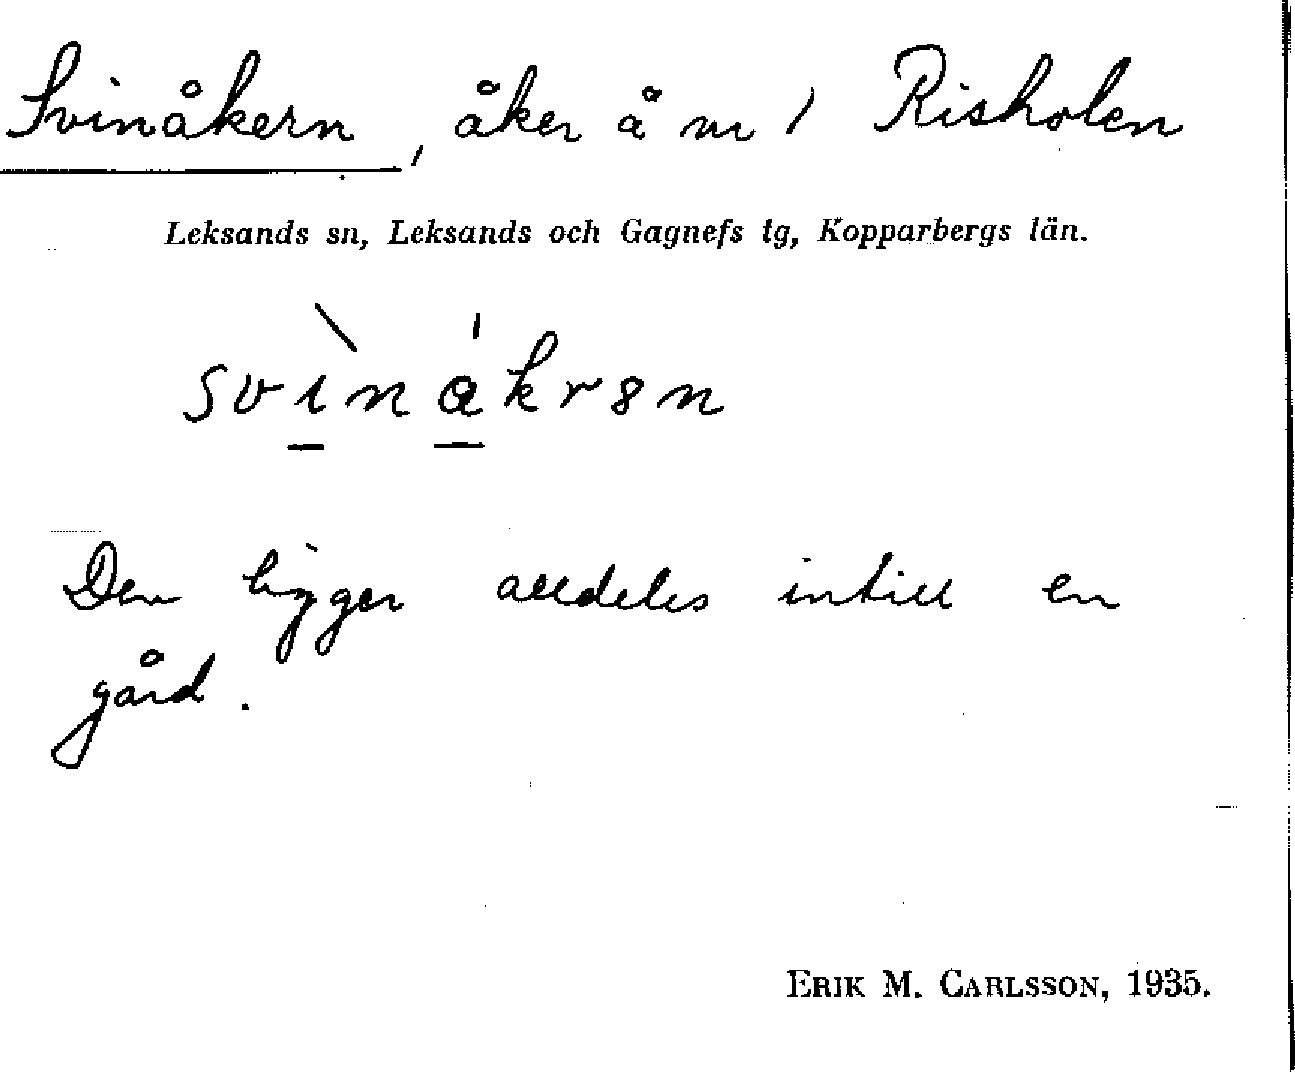 Svinåkern, åker å nr 1 Risholen
Leksands sn, Leksands och Gagnefs tg, Kopparbergs län.
svìnákr8n
Den ligger alldeles intill en
gård.
ERIK M. CARLSSON, 1935.